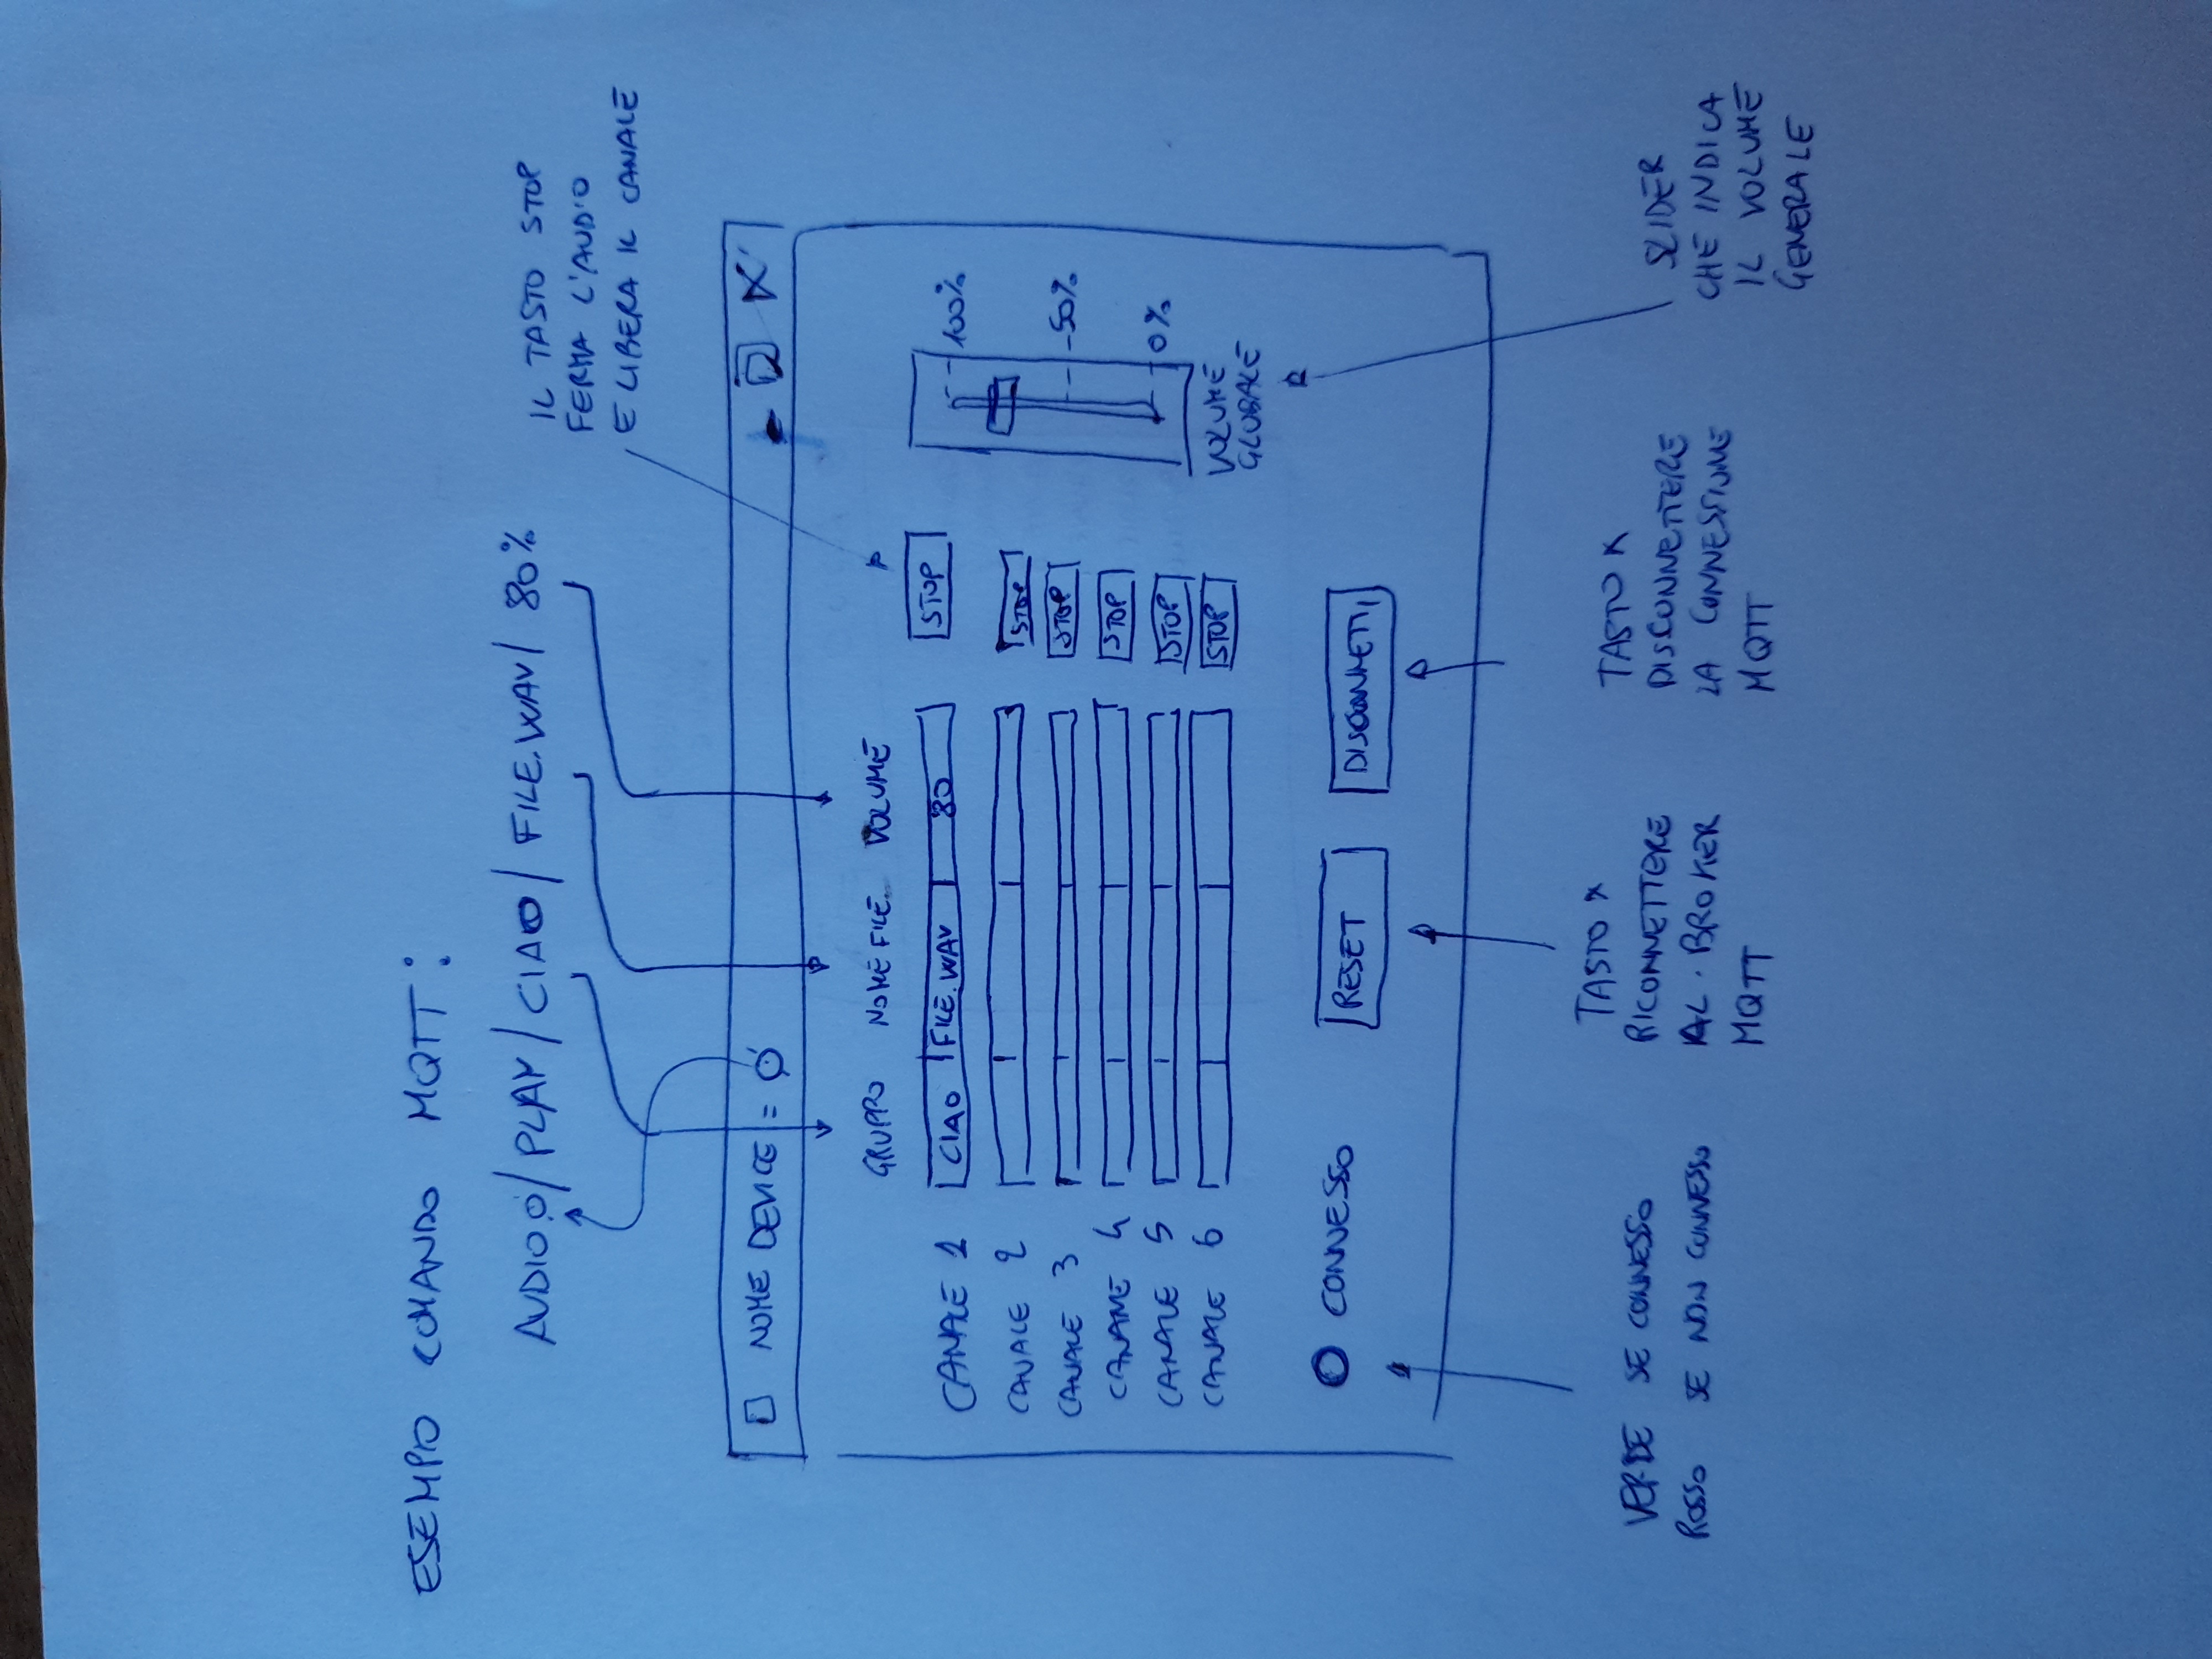 ESEMPIO COMANDO MQTT:
AUDIO.0/PLAY/CIAO/FILE.WAV/80%
IL TASTO STOP
FERMA L'AUDIO
E LIBERA IL CANALE
NOME DEVICE = 0
GRUPPO NOME FILE VOLUME
CANALE 1 CIAO FILE.WAV 80 STOP
CANALE 2 STOP
CANALE 3 STOP
CANALE 4 STOP
CANALE 5 STOP
CANALE 6 STOP
100%
-50%
0%
VOLUME
GLOBALE
CONNESSO RESET DISCONNETTI
VERDE SE CONNESSO
ROSSO SE NON CONNESSO
TASTO X
RICONNETTERE
AL BROKER
MQTT
TASTO X
DISCONNETTERE
LA CONNESSIONE
MQTT
SLIDER
CHE INDICA
IL VOLUME
GENERALE